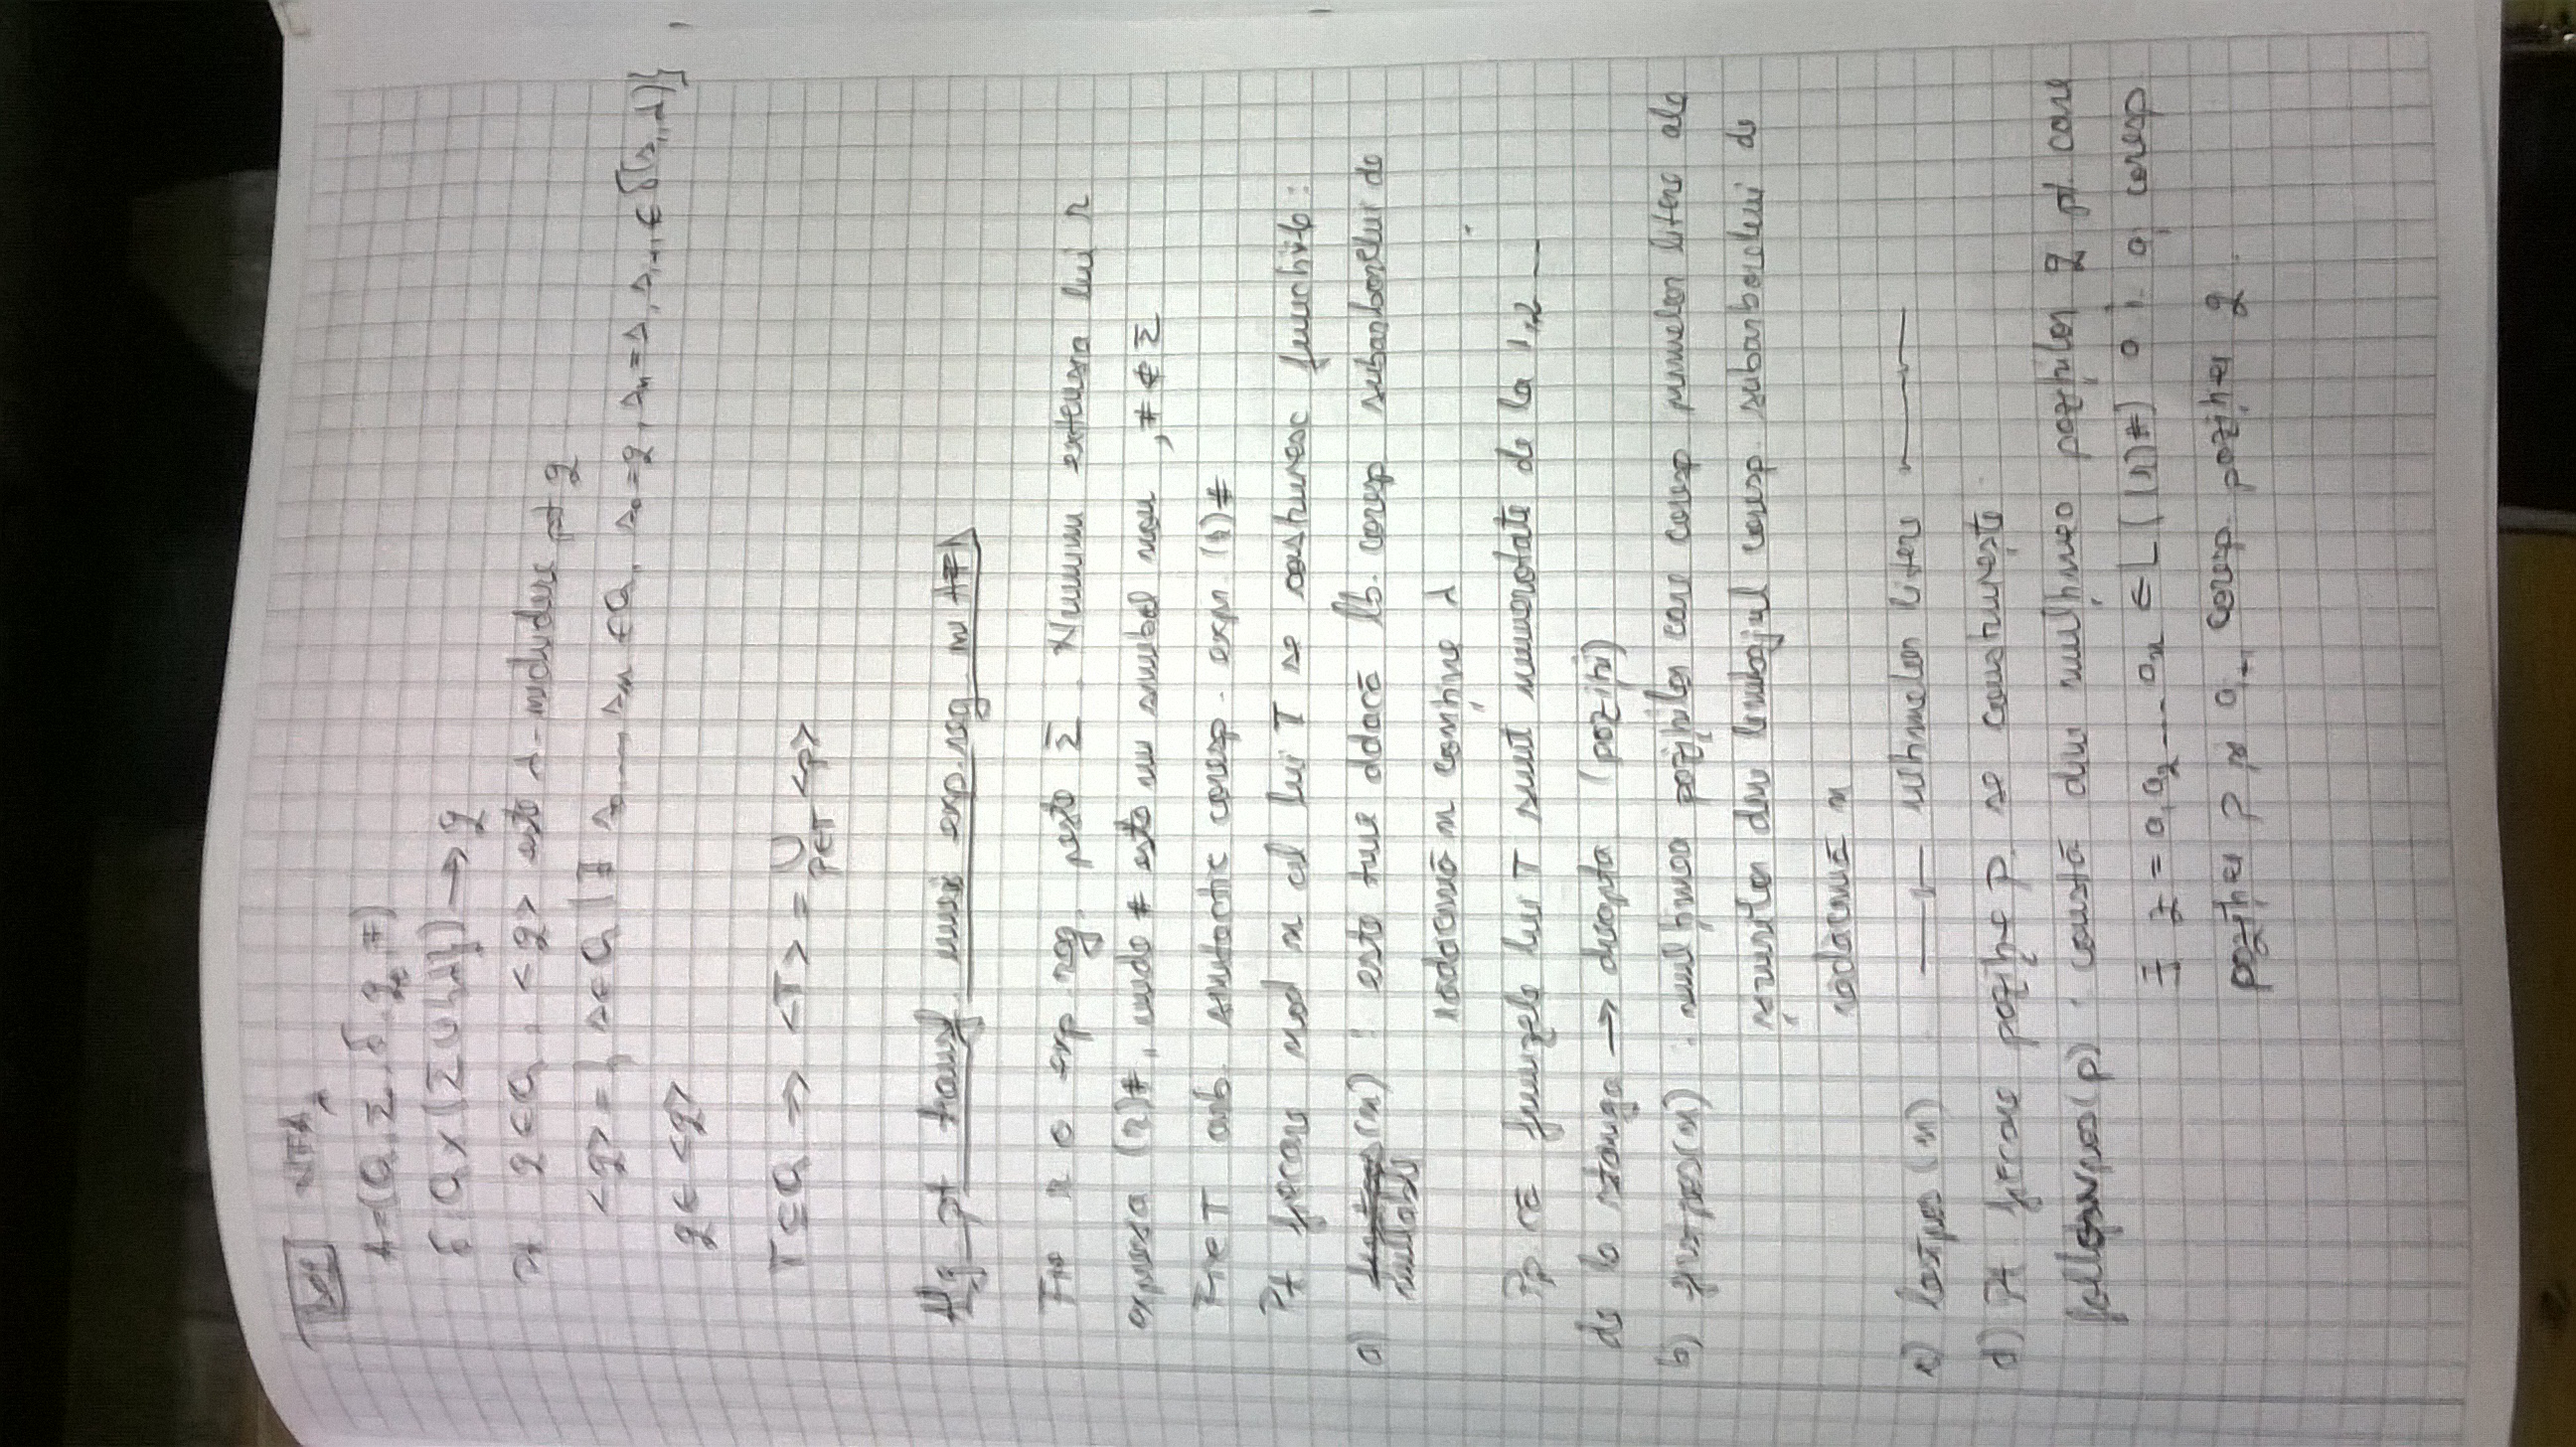 NFA
A=(Q, Σ, δ, q₀, F)
δ: Q × (Σ ∪ {λ}) → q
Pt q ∈ Q, <q> este λ-închidere pt q
<q> = { s ∈ Q | ∃ s₀ ... sₙ ∈ Q, s₀ = q, sₙ = s, sᵢ₊₁ ∈ δ(sᵢ, λ)}
q ∈ <q>
T ⊆ Q ⇒ <T> = ∪ <p>
p∈T
Alg pt transf. unei exp. reg. în AFD
Fie r o exp reg. peste Σ. Numim extensia lui r
expresia (r)#, unde # este un simbol nou, # ∉ Σ
Fie T arb. sintactic coresp. expr. (r)#
Pt fiecare nod n al lui T se construiesc funcțiile:
a) (n) : este true ddacă lb. coresp subarborelui de
nullable
rădăcină n conține λ
Pp că frunzele lui T sunt numerotate de la 1,2 ...
de la stânga → dreapta (poziții)
b) firstpos(n) : mulțimea pozițiilor care coresp primelor litere ale
șirurilor din limbajul coresp. subarborelui de
rădăcină n
c) lastpos(n) —"— ultimelor litere —"—
d) Pt fiecare poziție p. se construiește
followpos(p) : constă din mulțimea pozițiilor q pt. care
∃ z = a₁a₂ ... aₙ ∈ L((r)#) a.î. aᵢ coresp
poziției p și aᵢ₊₁ coresp. poziției q.